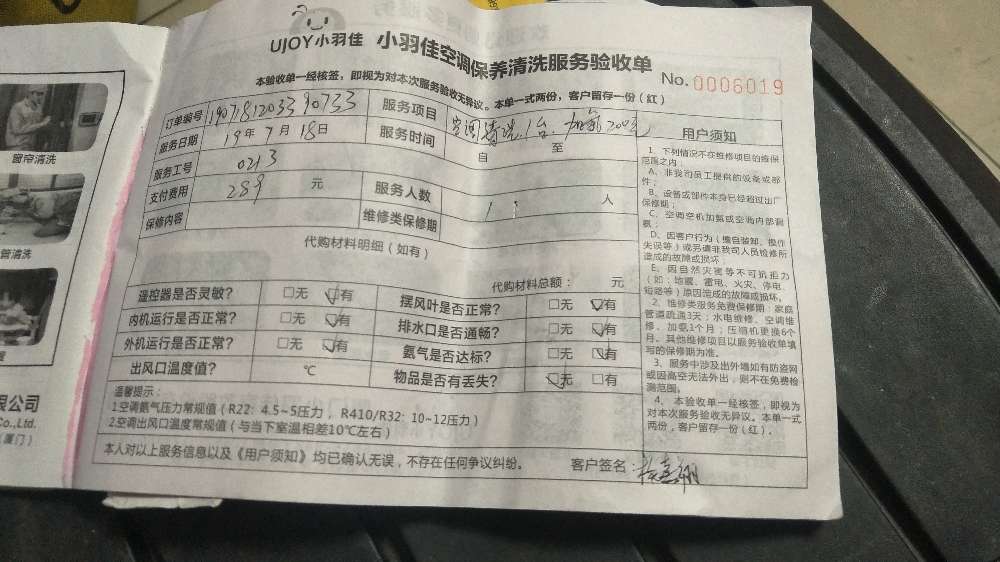 UJOY小羽佳 小羽佳空调保养清洗服务验收单
本验收单一经核签，即视为对本次服务验收无异议。本单一式两份，客户留存一份（红）
No. 0006019
订单编号 1907181203390733 服务项目 空调清洗1台.加氟200元
服务日期 19年7月18日 服务时间 自 至
服务工号 0213
支付费用 289 元 服务人数 1 人
保修内容 维修类保修期
代购材料明细（如有）
代购材料总额： 元
遥控器是否灵敏？ □无 □有 摆风叶是否正常？ □无 □有
内机运行是否正常？ □无 □有 排水口是否通畅？ □无 □有
外机运行是否正常？ □无 □有 氨气是否达标？ □无 □有
出风口温度值？ ℃ 物品是否有丢失？ □无 □有
温馨提示：
1.空调氨气压力常规值（R22: 4.5~5压力， R410/R32: 10~12压力）
2.空调出风口温度常规值（与当下室温相差10℃左右）
本人对以上服务信息以及《用户须知》均已确认无误，不存在任何争议纠纷。 客户签名：
用户须知
1、下列情况不在维修项目的维保
范围之内：
A、非我司员工提供的设备或部
件；
B、设备或部件本身已经超过出厂
保修期；
C、空调空机加氨或空调内部漏
氨；
D、因客户行为（擅自装卸、操作
失误等）或另请非我司人员检修所
造成的故障或损坏；
E、因自然灾害等不可抗拒力
（如：地震、雷电、火灾、停电、
短路等）原因造成的故障或损坏。
2、维修类服务免费保修期：家庭
管道疏通3天；水电维修、空调维
修、加氨1个月；压缩机更换6个
月。其他维修项目以服务验收单填
写的保修期为准。
3、服务中涉及出外墙如有防盗网
或因高空无法外出，则不在免费检
测范围。
4、本验收单一经核签，即视为
对本次服务验收无异议。本单一式
两份，客户留存一份（红）。
窗帘清洗
管清洗
限公司
Co.,Ltd.
（厦门）